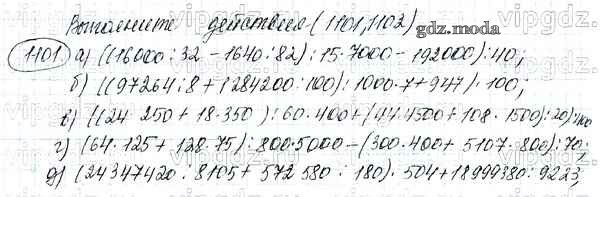 Выполните действия (1101,1102)
gdz.moda
1101 а) ((16000:32-1640:82):15·7000-192000):40;
б) ((97264:8+1284200:100):1000·7+947):100;
в) ((24 250+18·350):60·400+(44·4500+108·1500):20):100
г) (64·125+128·75):800·5000-(300·400+5107·800):70;
д) (24347420:8105+572 580:180)·504+18999380:9223;